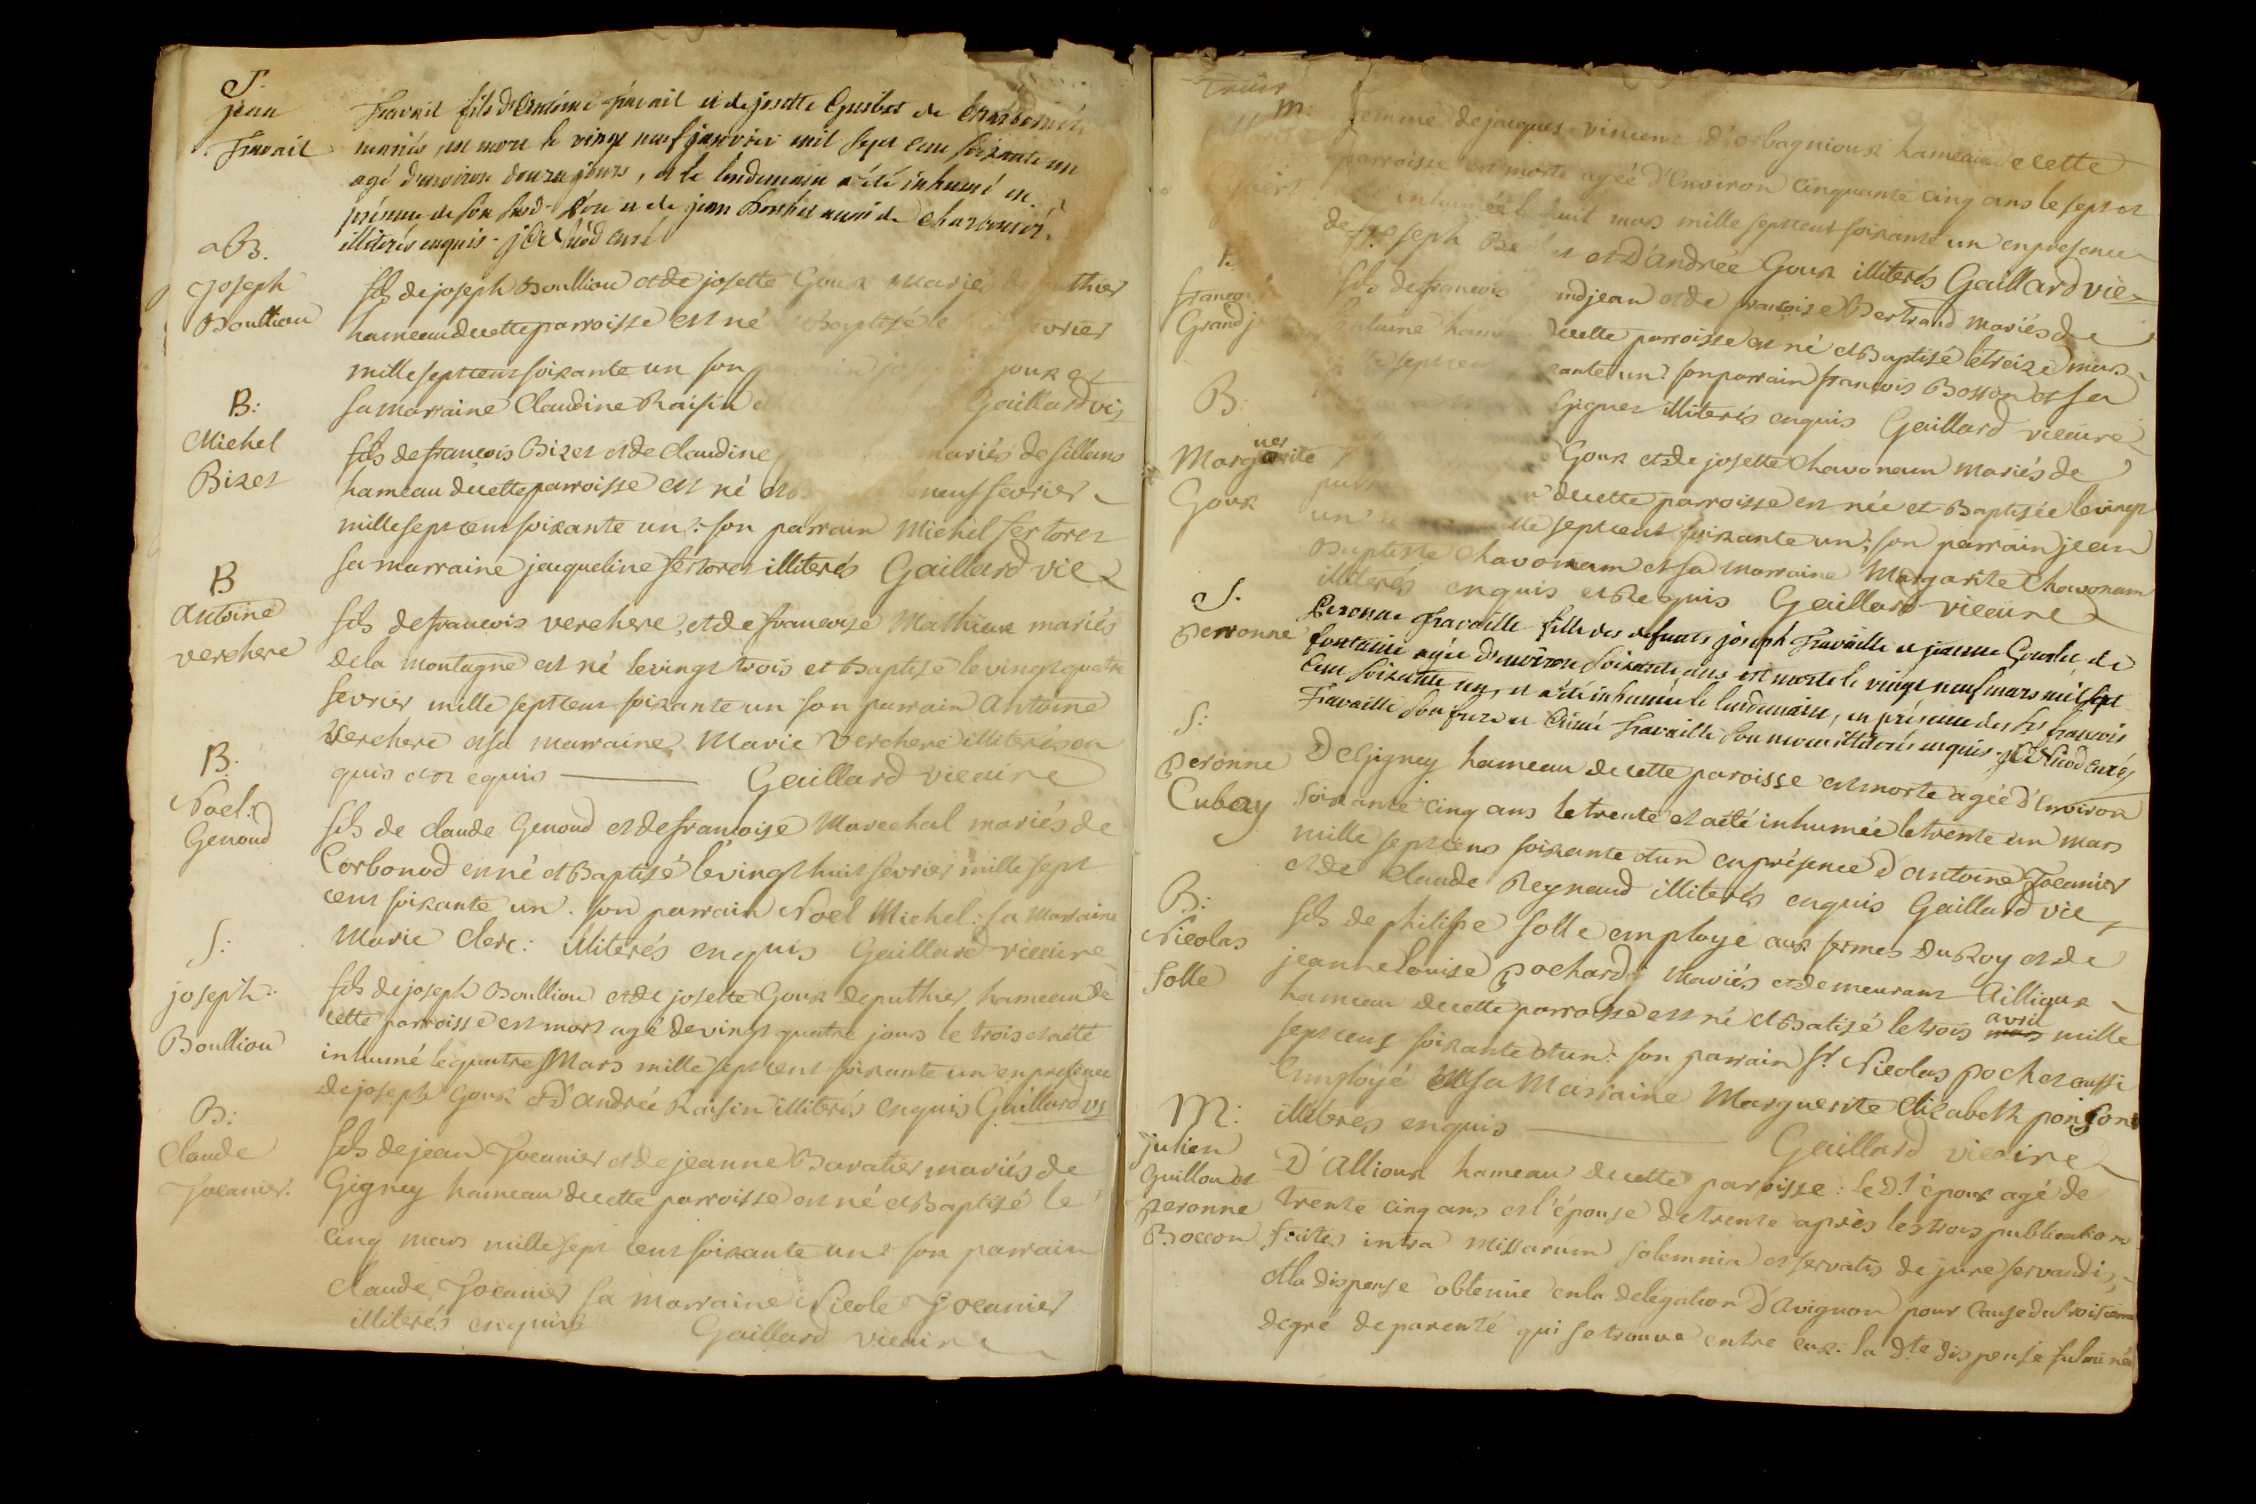 S.
jean
Travail
Travail fils d'Entheme Travail et de josette Guerbet de Charbonier
mariés, est mort le vingt neuf janvier mil sept cent soixante un
agé d'environ douze jours, et le lendemain a été inhumé en
présence de son susd. Père et de jean Borshet aussi de Charbonier
illiterés enquis - j De Luod curé
B.
joseph
Boullion
fils de joseph Boullion et de josette Goux mariés de puthier
hameau de cette parroisse est né Baptisé le fevrier
mille sept cent soixante un son goux et
sa marraine Claudine Raisin Gaillard vic
B:
Michel
Bizet
fils de francois Bizet et de Claudine mariés de sillans
hameau de cette parroisse est né et neuf fevrier
mille sept cent soixante un: son parrain Michel fertoret
sa marraine jacqueline fertoret illiterés Gaillard vic
B
Antoine
verchere
fils de francois verchere, et de francoise Mathieux mariés
de la montagne est né le vingt trois et Baptisé le vingt quatre
fevrier mille sept cent soixante un son parrain Antoine
verchere et sa marraine Marie verchere illiterés en
quis et requis Gaillard vicaire
B:
Noel:
Genoud
fils de claude Genoud et de francoise Marechal mariés de
Corbonod est né et Baptisé le vingt huit fevrier mille sept
cent soixante un. son parrain Noel Michel: sa marraine
Marie Clerc: illiterés enquis Gaillard vicaire
S:
joseph:
Boullion
fils de joseph Boullion et de josette Goux de puthier, hameau de
cette parroisse est mort agé de vingt quatre jours le trois et a été
inhumé le quatre Mars mille sept cent soixante un en presence
de joseph Goux et D'andrée Raisin illiterés enquis Gaillard vic
B:
Claude
Jocanier.
fils de jean Jocanier et de jeanne Baratier mariés de
Gigney hameau de cette parroisse est né et Baptisé le
cinq mars mille sept cent soixante un: son parrain
claude Jocanier sa marraine Nicole Jocanier
illiterés enquis Gaillard vicaire
trois
m:
femme de jacques vincent D'orbagnioux hameau de cette
parroisse est morte agée D'environ cinquante cinq ans le sept et
inhumée le huit mars mille sept cent soixante un en presence
de joseph et D'andrée Goux illiterés Gaillard vic
B.
francois
Grandj
fils de francois andjean et de francoise Bertrand mariés de
fontaine hameau de cette parroisse est né et Baptisé le treize mars
sept cent soixante un: son parrain francois Bosson et sa
Gignez illiterés enquis Gaillard vicaire
B:
Marguerite
Goux
Goux et de josette Chavonam mariés de
de cette parroisse est née et Baptisée le vingt
un mille sept cent soixante un; son parrain jean
Baptiste Chavonam et sa marraine Margarite Chavonam
illiterés enquis et Requis Gaillard vicaire
S.
perronne
Peronne Travaille fille des defunts joseph Travaille et jeanne Gourdet de
fontaine agée d'environ soixante ans est morte le vingt neuf mars mil sept
cent soixante un, et a été inhumée le lendemain, en présence des srs francois
Travaille son frere et Aimé Travaille son neveu illiterés enquis - j De Luod curé
S:
peronne
Cubay
De Gigney hameau de cette paroisse est morte agée d'Environ
soixante cinq ans le trente et a été inhumée le trente un mars
mille sept cens soixante et un en présence D'antoine Jocanier
et de Claude Reynaud illiterés enquis Gaillard vic
B:
Nicolas
Solle
fils de philippe solle employé aux fermes Du Roy et de
jeanne Louise pochard; mariés et demeurant Ailloux
hameau de cette parroisse est né et Batisé le trois avril mille
sept cens soixante et un: son parrain sr. Nicolas pochet aussi
Employé et sa Marraine Marguerite Elizabeth poinçon
illiteres enquis Gaillard vicaire
M:
julien
Guillon et
peronne
Boccon
D'Allioux hameau de cette paroisse: le Dt époux agé de
trente cinq ans et l'épouse de trente après les trois publications
faites intra missarum solemnia et servatis de jure servandis,
et la dispense obtenue en la delégation D'avignon pour Cause du troisieme
degré de parenté qui se trouve entre eux: la Dte dispense fulminée